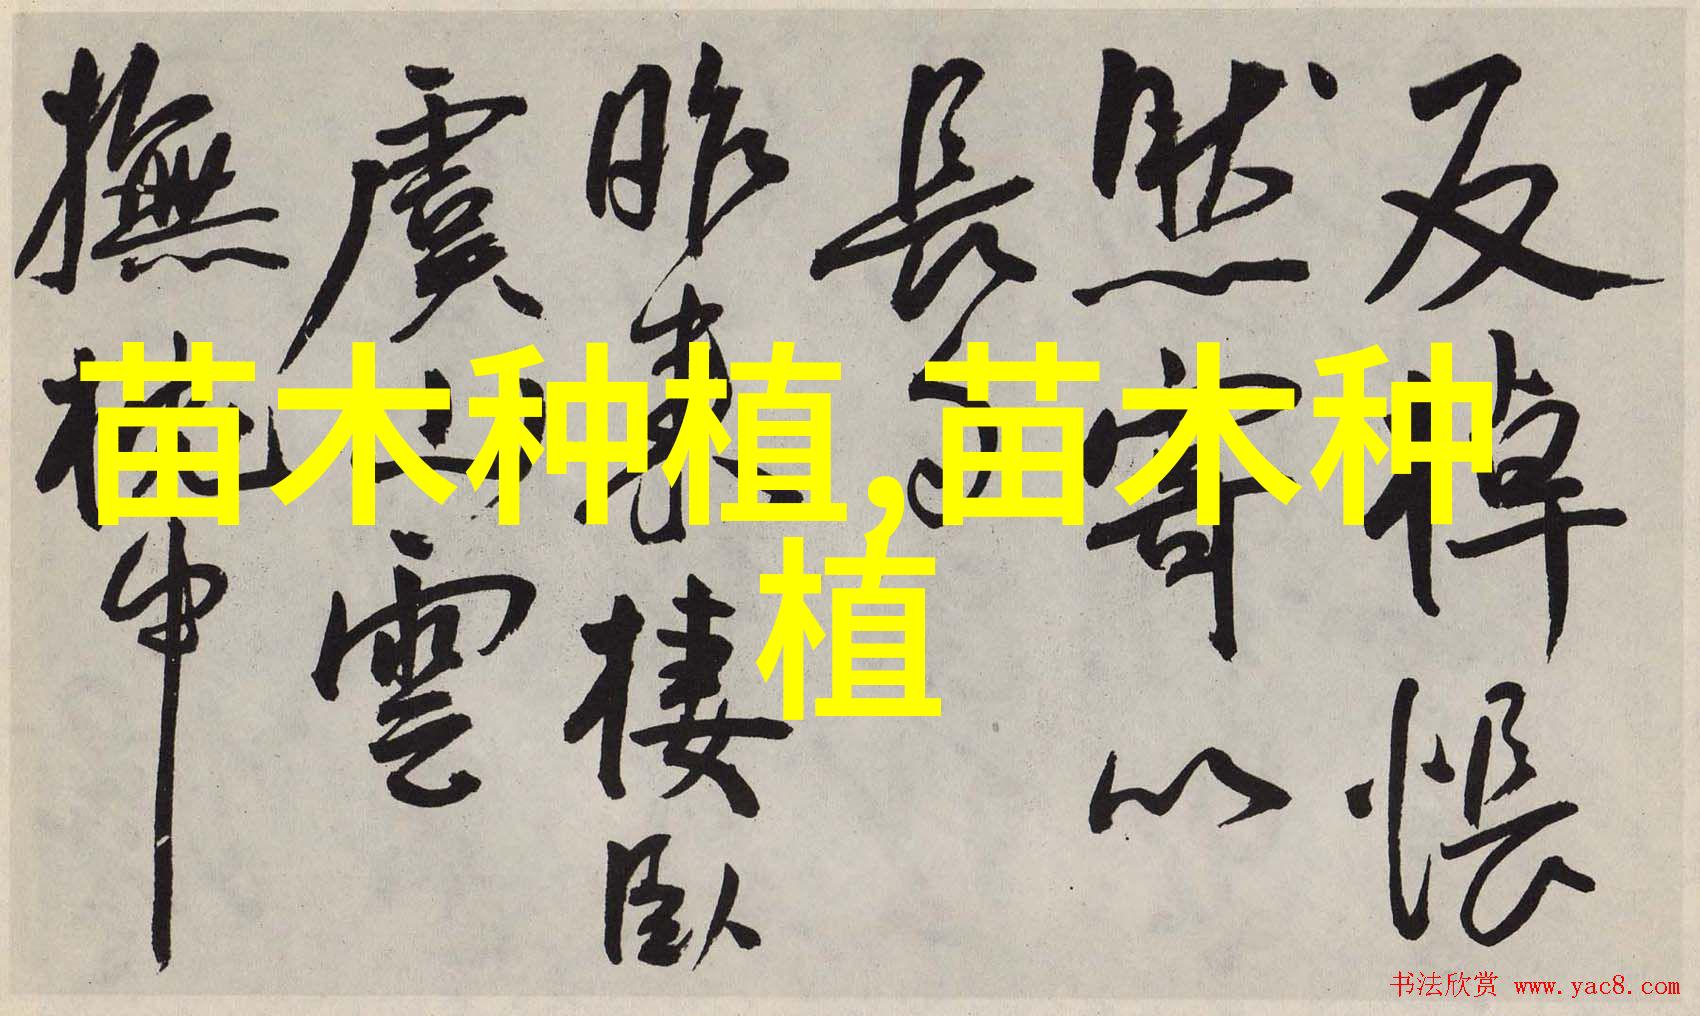 反棹悵
然寄以
長句
昨棲臥
虞山雲
撫
苗木种植,苗木种
植
书法欣赏 www.yac8.com